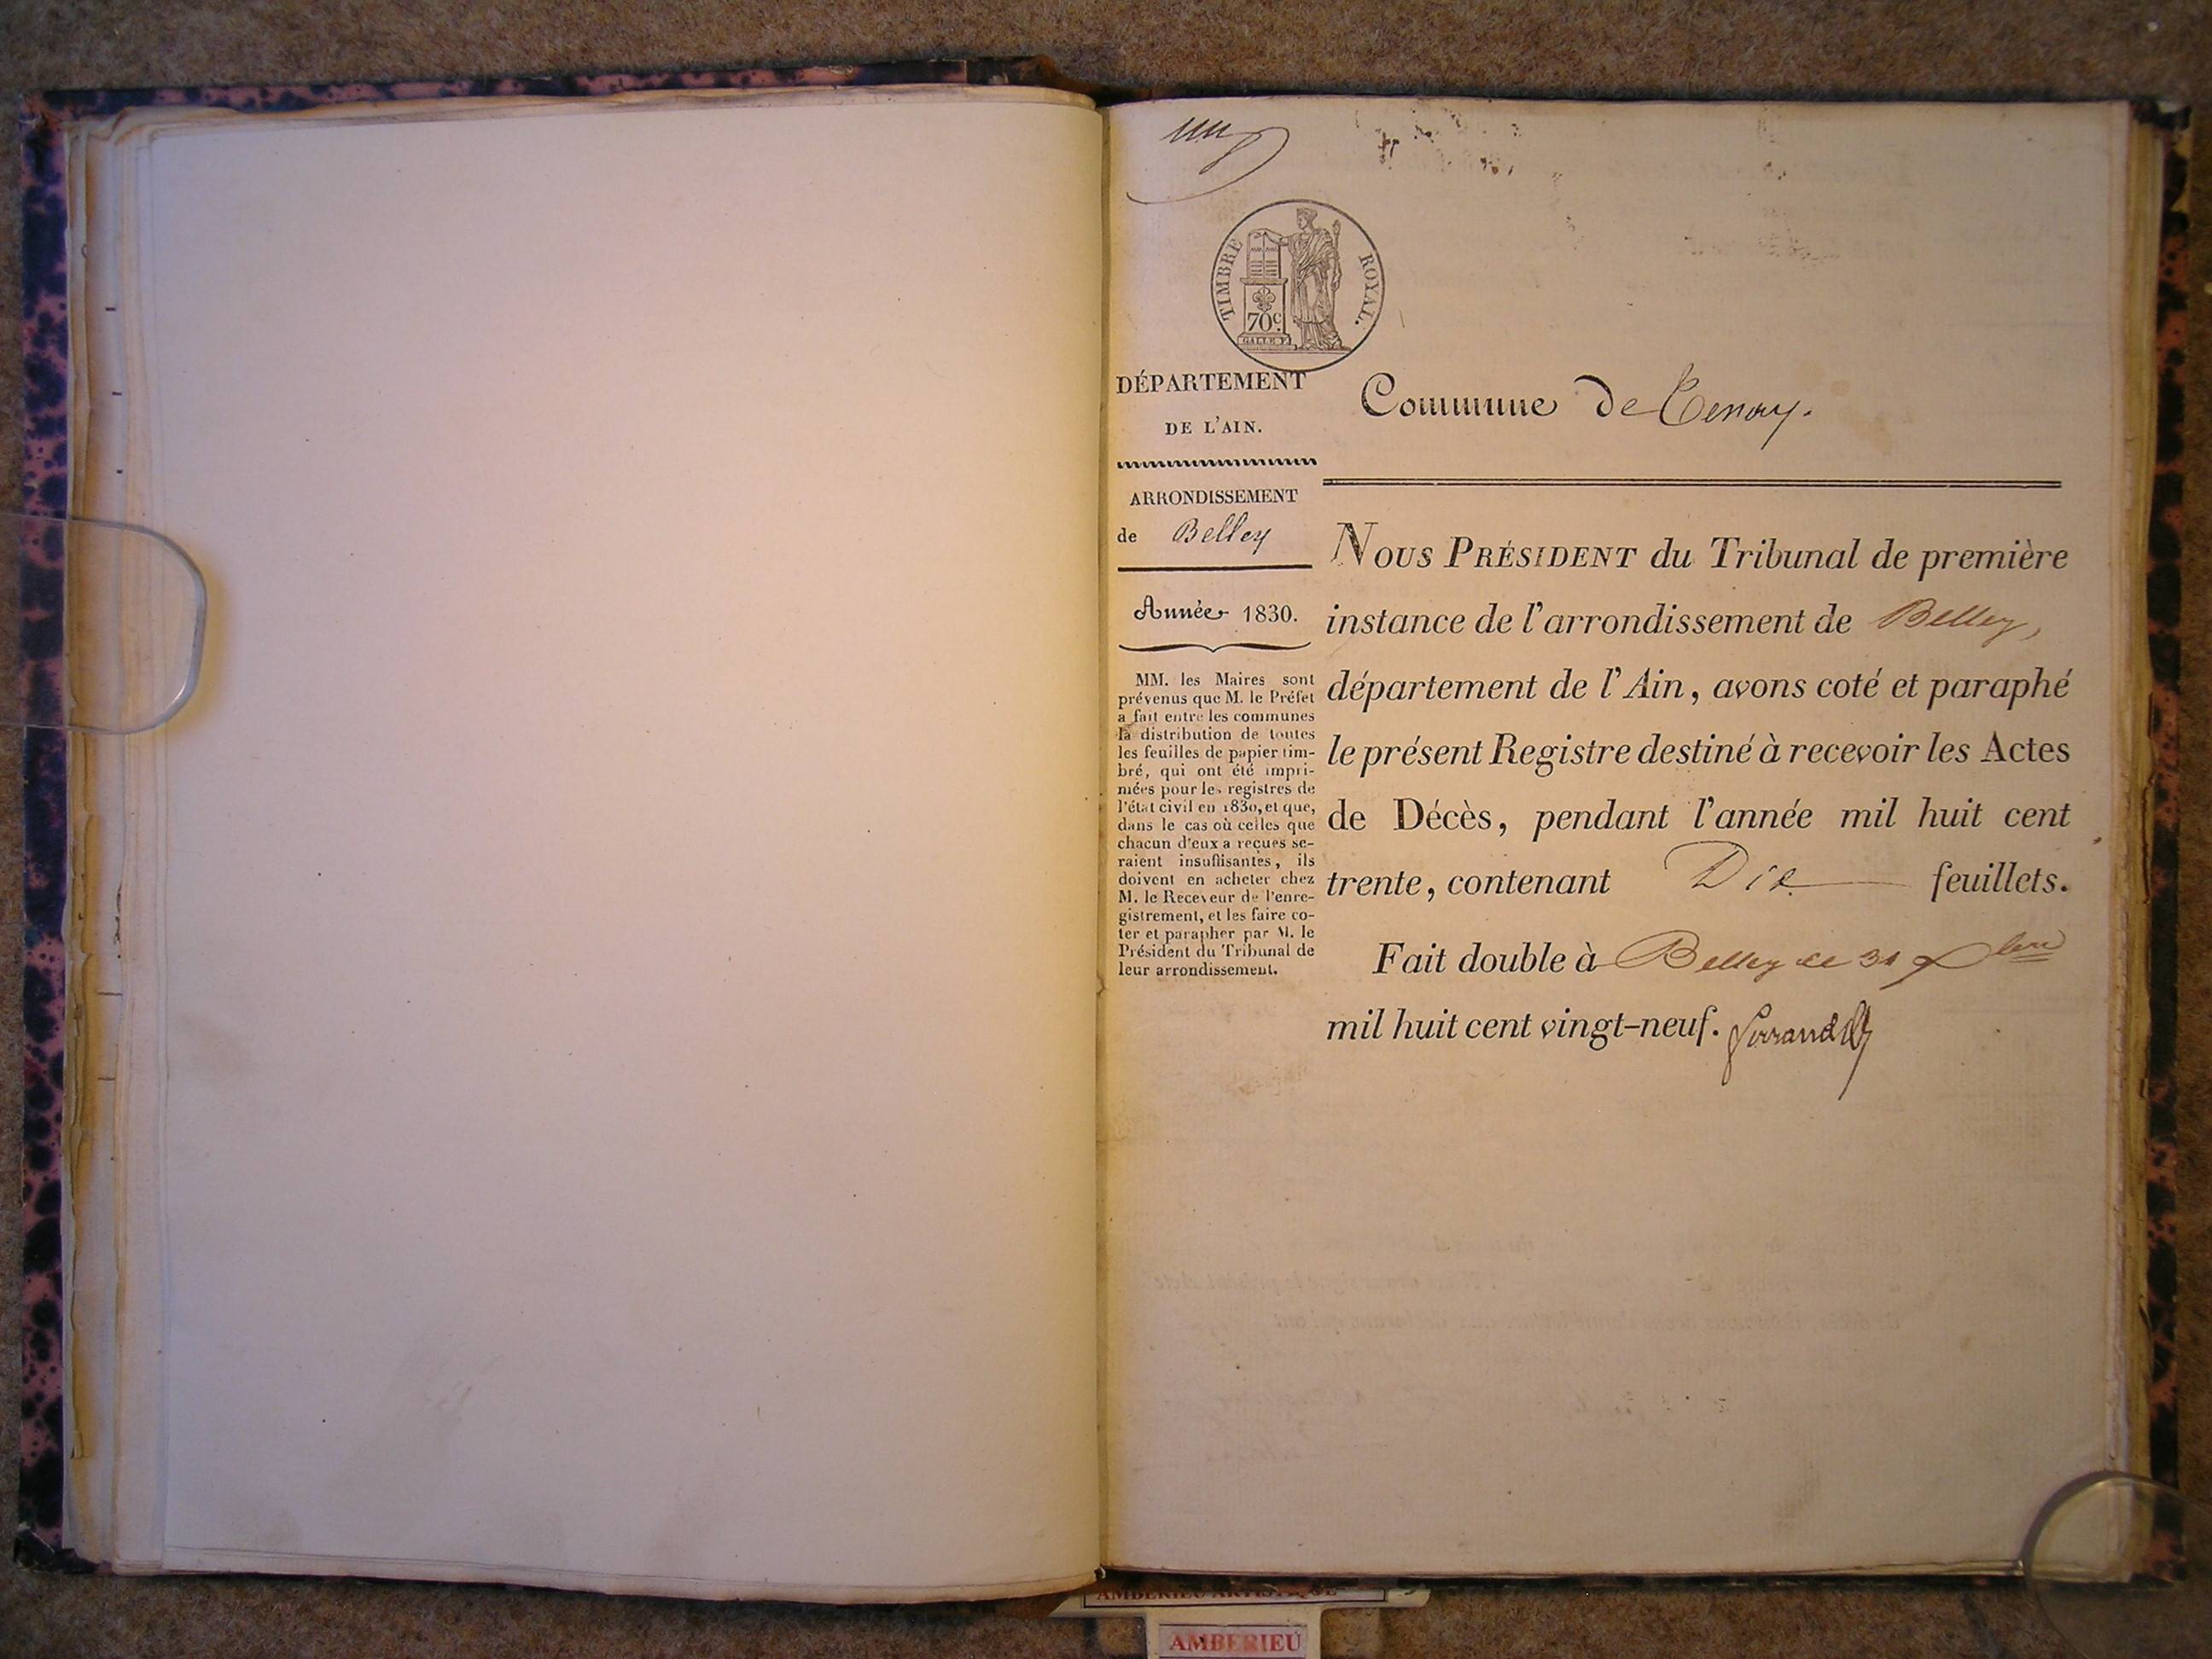 TIMBRE ROYAL.
70c.
GALLE F.
DÉPARTEMENT
DE L'AIN.
Commune de Tenay.
ARRONDISSEMENT
de Belley
Année 1830.
MM. les Maires sont
prévenus que M. le Préfet
a fait entre les communes
la distribution de toutes
les feuilles de papier tim-
bré, qui ont été impri-
mées pour les registres de
l'état civil en 1830, et que,
dans le cas où celles que
chacun d'eux a reçues se-
raient insuffisantes, ils
doivent en acheter chez
M. le Receveur de l'enre-
gistrement, et les faire co-
ter et parapher par M. le
Président du Tribunal de
leur arrondissement.
NOUS PRÉSIDENT du Tribunal de première
instance de l'arrondissement de Belley,
département de l'Ain, avons coté et paraphé
le présent Registre destiné à recevoir les Actes
de Décès, pendant l'année mil huit cent
trente, contenant Dix feuillets.
Fait double à Belley ce 31 Xbre
mil huit cent vingt-neuf.
AMBERIEU ARTISTIQUE
AMBERIEU